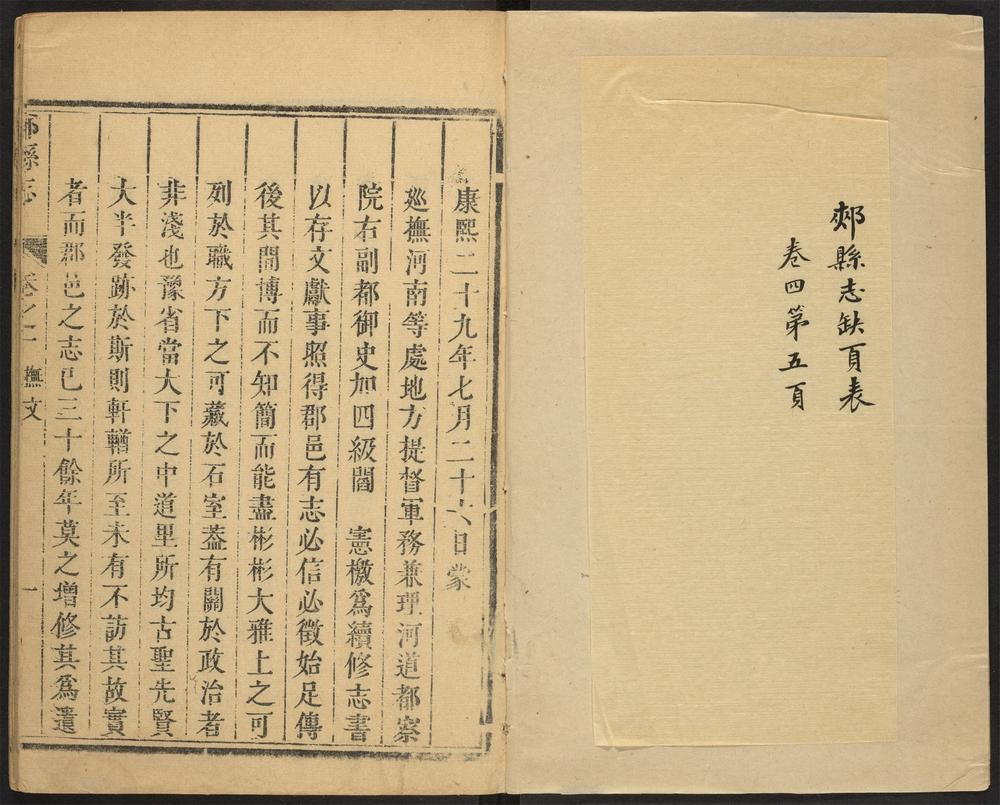 郟縣志缺頁表
卷四第五頁
康熙二十九年七月二十六日蒙
廵撫河南等處地方提督軍務兼理河道都察
院右副都御史加四級閻　憲檄爲續修志書
以存文獻事照得郡邑有志必信必徵始足傳
後其間博而不知簡而能盡彬彬大雅上之可
列於職方下之可藏於石室葢有關於政治者
非淺也豫省當大下之中道里所均古聖先賢
大半發跡於斯則軒輶所至未有不訪其故實
者而郡邑之志已三十餘年莫之增修其爲遺
郟縣志　卷之一　撫文　一